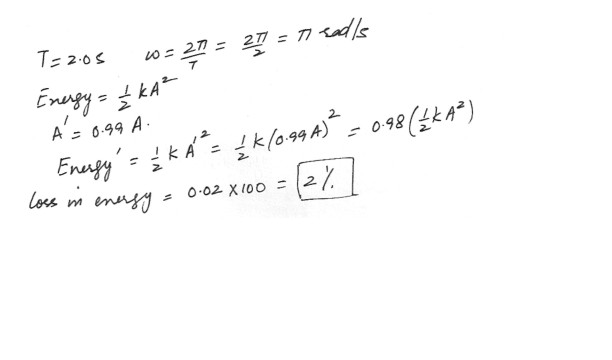 T = 2.0 s ω = 2π/T = 2π/2 = π rad/s
Energy = 1/2 kA²
A' = 0.99 A.
Energy' = 1/2 k A'² = 1/2 k (0.99 A)² = 0.98 (1/2 k A²)
loss in energy = 0.02 × 100 = 2%